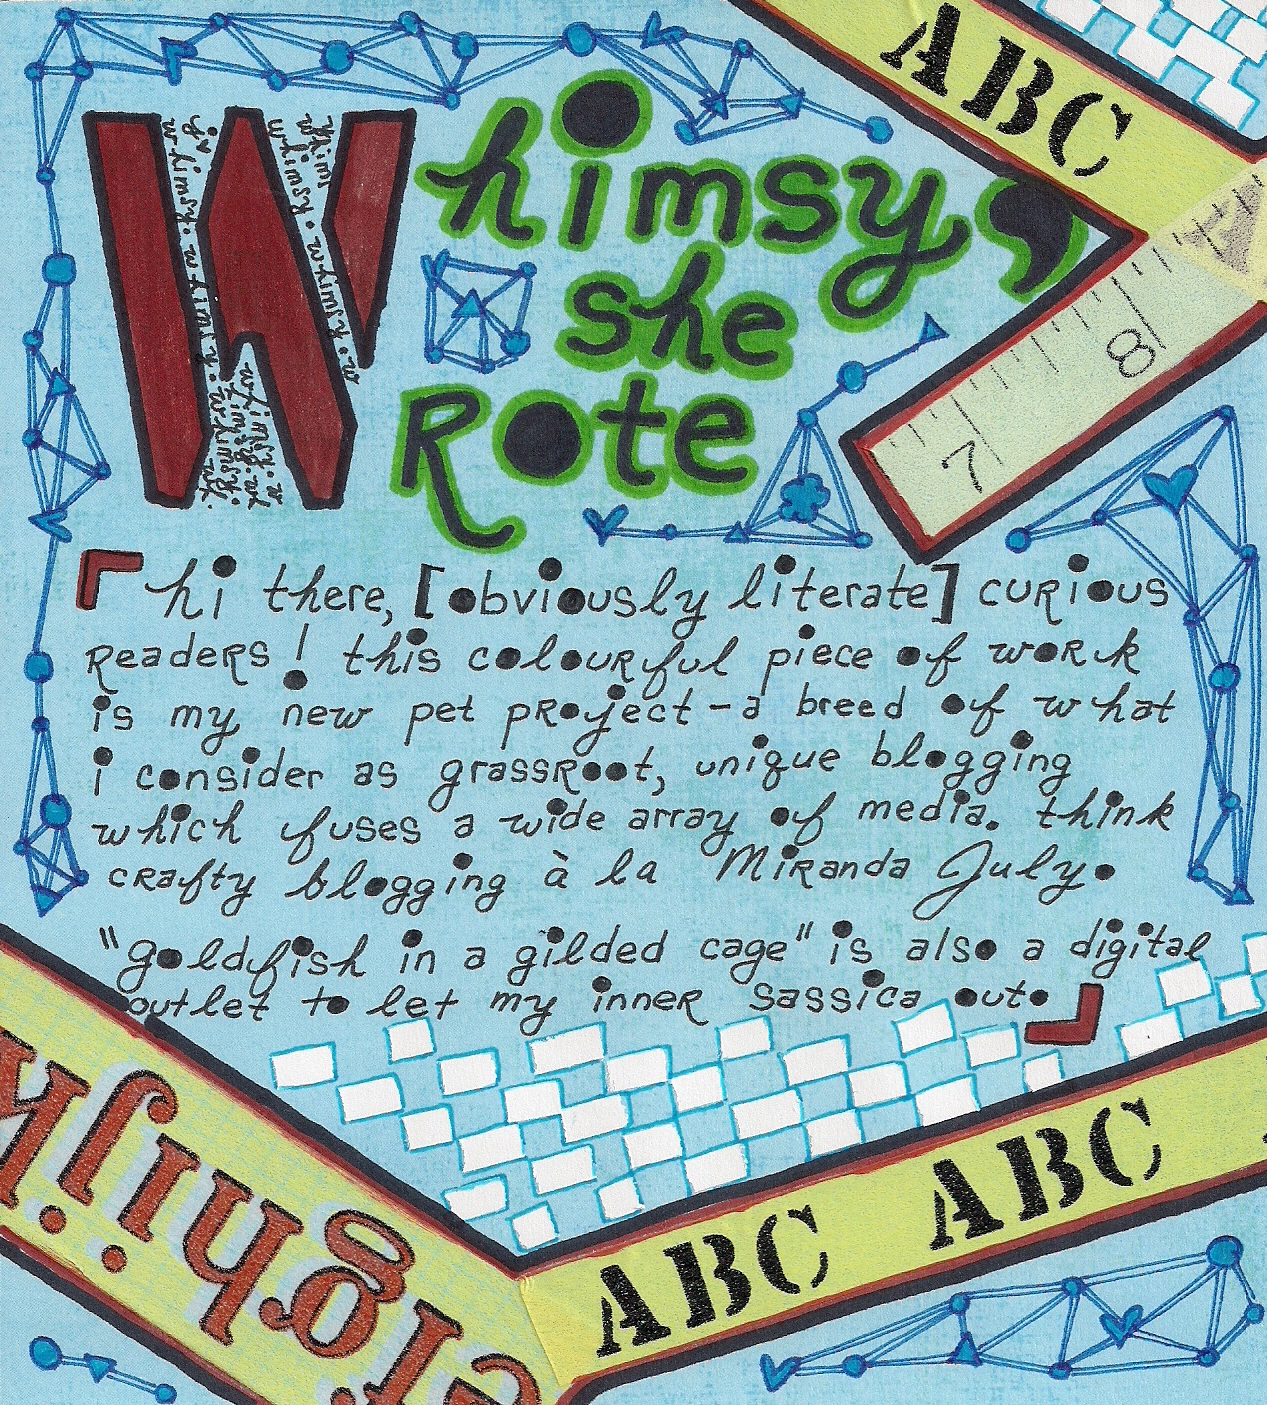 ABC
Whimsy,
she
Rote
8
7
hi there, [obviously literate] curious
readers! this colourful piece of work
is my new pet project - a breed of what
i consider as grassroot, unique blogging
which fuses a wide array of media. think
crafty blogging à la Miranda July.
"goldfish in a gilded cage" is also a digital
outlet to let my inner sassica out.
ABC ABC
fghijk